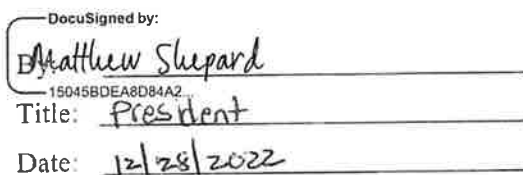 DocuSigned by:
By: Matthew Shepard
15045BDEA8D84A2...
Title: President
Date: 12/28/2022